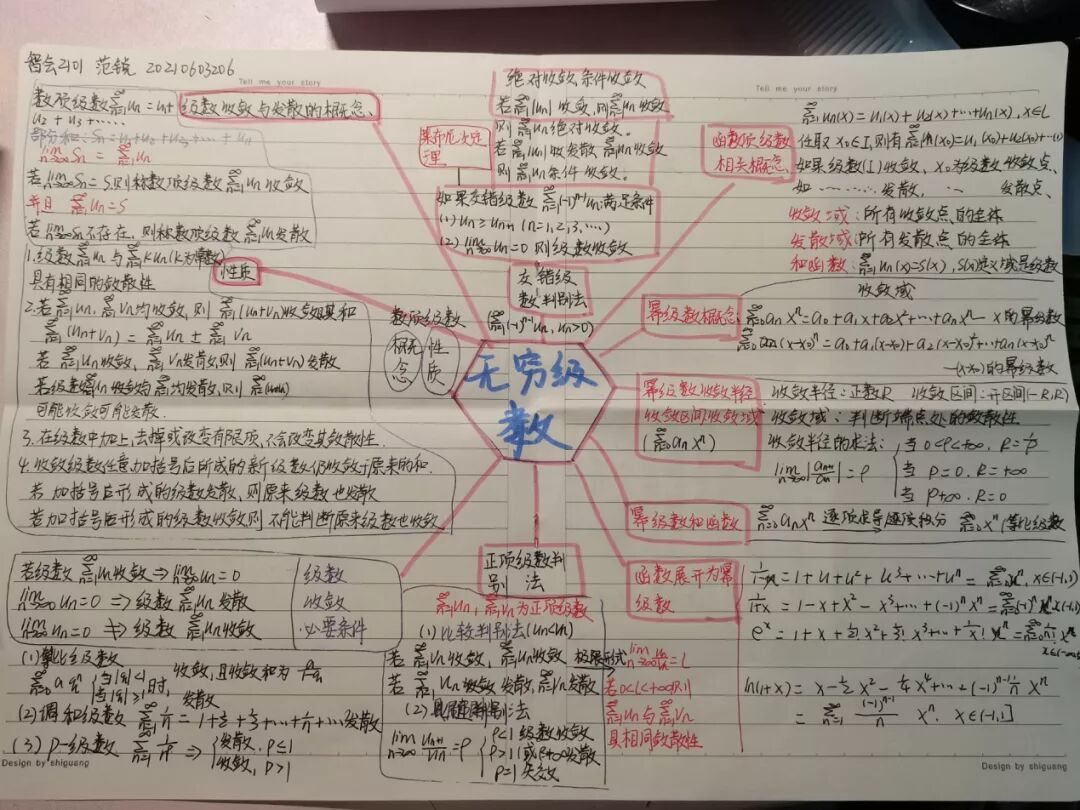 智会2101 范锐 20210603206
Tell me your story
Tell me your story
数项级数∑(n=1→∞)un = u1+
u2 + u3 + ……
级数收敛与发散的概念、
部分和：Sn = u1+u2+u3+…+un
lim(n→∞)Sn = ∑(n=1→∞)un
若lim(n→∞)Sn=S,则称数项级数∑(n=1→∞)un收敛
并且 ∑(n=1→∞)un=S
若lim(n→∞)Sn不存在，则称数项级数∑(n=1→∞)un发散
性质
1.级数∑(n=1→∞)un与∑(n=1→∞)kun(k为常数)
具有相同的敛散性
2.若∑(n=1→∞)un, ∑(n=1→∞)vn均收敛，则
收敛且其和
∑(n=1→∞)(un+vn) = ∑(n=1→∞)un ± ∑(n=1→∞)vn
若∑(n=1→∞)un收敛, ∑(n=1→∞)vn发散,则∑(n=1→∞)(un+vn)发散
可能收敛可能发散.
3.在级数中加上,去掉或改变有限项,不会改变其敛散性.
4.收敛级数任意加括号后所成的新级数仍收敛于原来的和.
若加括号后形成的级数发散,则原来级数也发散
若加括号后形成的级数收敛则不能判断原来级数也收敛
数项级数
概念
性质
无穷级数
绝对收敛、条件收敛
若∑(n=1→∞)|un|收敛，则∑(n=1→∞)un收敛
则∑(n=1→∞)un绝对收敛。
若∑(n=1→∞)|un|发散，∑(n=1→∞)un收敛
则∑(n=1→∞)un条件收敛。
莱布尼茨定理
如果交错级数∑(n=1→∞)(-1)^(n-1)un满足条件
(1) un≥un+1 (n=1,2,3,…)
(2) lim(n→∞)un=0 则级数收敛
交错级
数判别法
(∑(n=1→∞)(-1)^(n-1)un, un>0)
函数项级数
相关概念、
∑(n=1→∞)un(x) = u1(x)+u2(x)+…+un(x), x∈I
任取x0∈I,则有∑(n=1→∞)un(x0)=u1(x0)+u2(x0)+…(1)
如果级数(1)收敛，x0为级数收敛点、
如……发散，… 发散点、
收敛域：所有收敛点的全体
发散域：所有发散点的全体
和函数：∑(n=1→∞)un(x)=S(x), S(x)定义域是级数
收敛域
幂级数概念
∑(n=0→∞)anx^n=a0+a1x+a2x²+…+anx^n— x的幂级数
∑(n=0→∞)an(x-x0)^n=a0+a1(x-x0)+a2(x-x0)²+…+an(x-x0)^n
—(x-x0)的幂级数
幂级数收敛半径
收敛区间收敛域
(∑(n=0→∞)anx^n)
收敛半径：正数R 收敛区间：开区间(-R,R)
收敛域：判断端点处的敛散性
收敛半径的求法：
lim(n→∞)|an+1/an|=ρ
当0<ρ<+∞, R=1/ρ
当ρ=0, R=+∞
当ρ+∞, R=0
幂级数和函数
∑(n=0→∞)anx^n 逐项求导逐项积分 ∑(n=0→∞)x^n(等比级数
函数展开为幂
级数
1/(1-u)=1+u+u²+u³+…+u^n=∑(n=0→∞)u^n, x∈(-1,1)
1/(1+x)=1-x+x²-x³+…+(-1)^n x^n=∑(n=0→∞)(-1)^n x^n x∈(-1,1)
e^x=1+x+1/2! x²+1/3! x³+…+1/n! x^n=∑(n=0→∞)1/n! x^n
ln(1+x) = x-1/2 x²-1/4 x⁴+…+(-1)^(n-1) 1/n x^n
= ∑(n=1→∞)(-1)^(n-1)/n x^n. x∈(-1,1]
若级数∑(n=1→∞)un收敛⇒lim(n→∞)un=0
lim(n→∞)un=0 ⇒级数∑(n=1→∞)un发散
lim(n→∞)un=0 ⇏级数∑(n=1→∞)un收敛
级数
收敛
必要条件
(1)等比级数
∑(n=0→∞)aq^n
当|q|<1 收敛,且收敛和为a/(1-q)
当|q|≥1时, 发散
(2)调和级数 ∑(n=1→∞)1/n=1+1/2+1/3+…+1/n+…发散
(3) P-级数 ∑(n=1→∞)1/n^p ⇒ 发散, p≤1
收敛, p>1
正项级数判
别法
∑(n=1→∞)un, ∑(n=1→∞)vn为正项级数
(1)比较判别法(un<vn)
若∑(n=1→∞)vn收敛, ∑(n=1→∞)un收敛
若∑(n=1→∞)un发散, ∑(n=1→∞)vn发散
极限形式
lim(n→∞)un/vn=l
若0<l<+∞则
∑(n=1→∞)un与∑(n=1→∞)vn
具相同敛散性
lim(n→∞)un+1/un=ρ
ρ<1 级数收敛
ρ>1或ρ+∞发散
ρ=1 失效
Design by shiguang
Design by shiguang